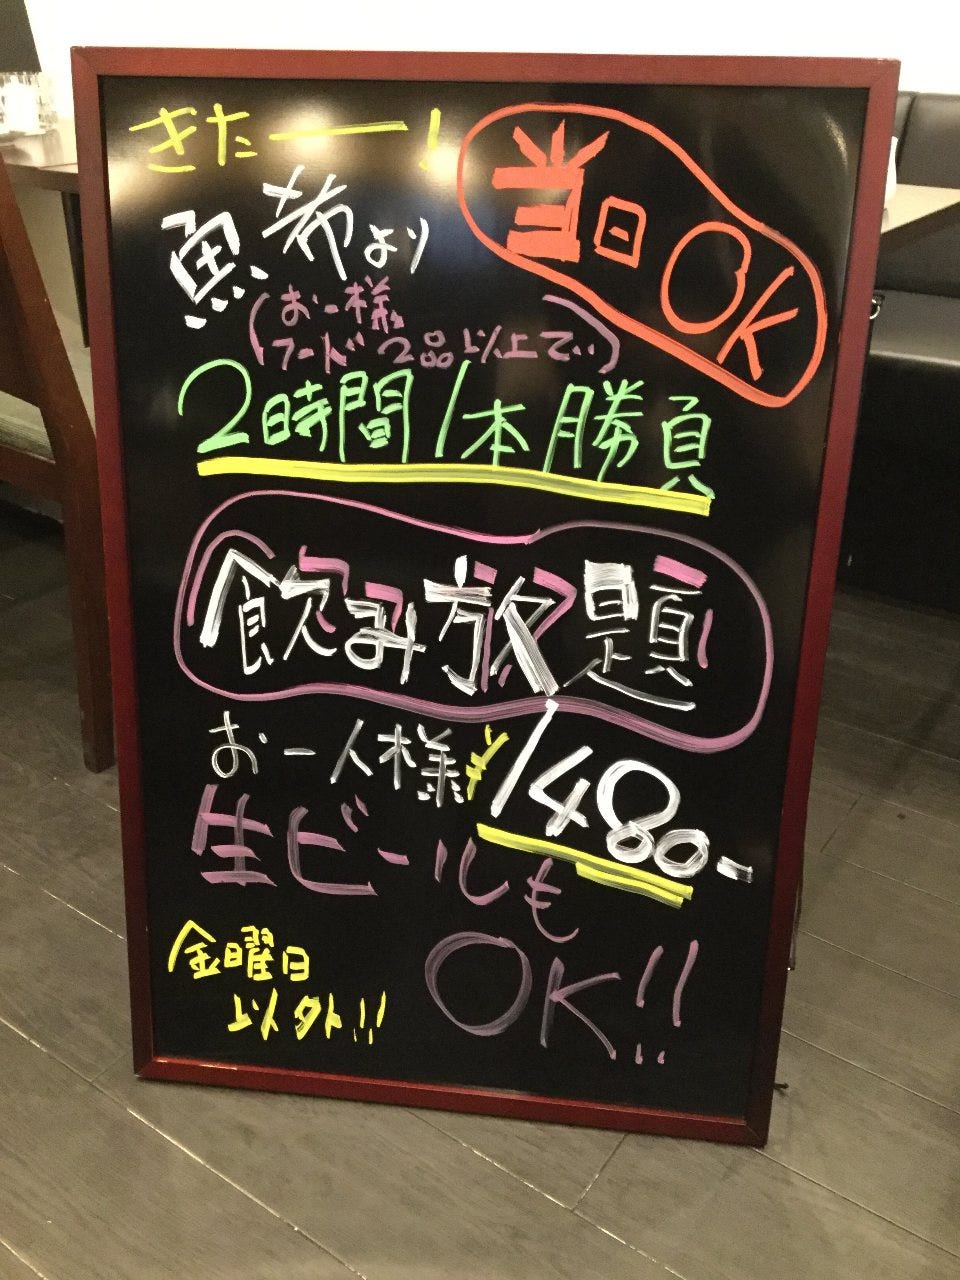 きたー!
当日OK
魚希より
(お一様
フード2品以上で)
2時間1本勝負
飲み放題
お一人様¥1480-
生ビールも
OK!!
金曜日
以外!!